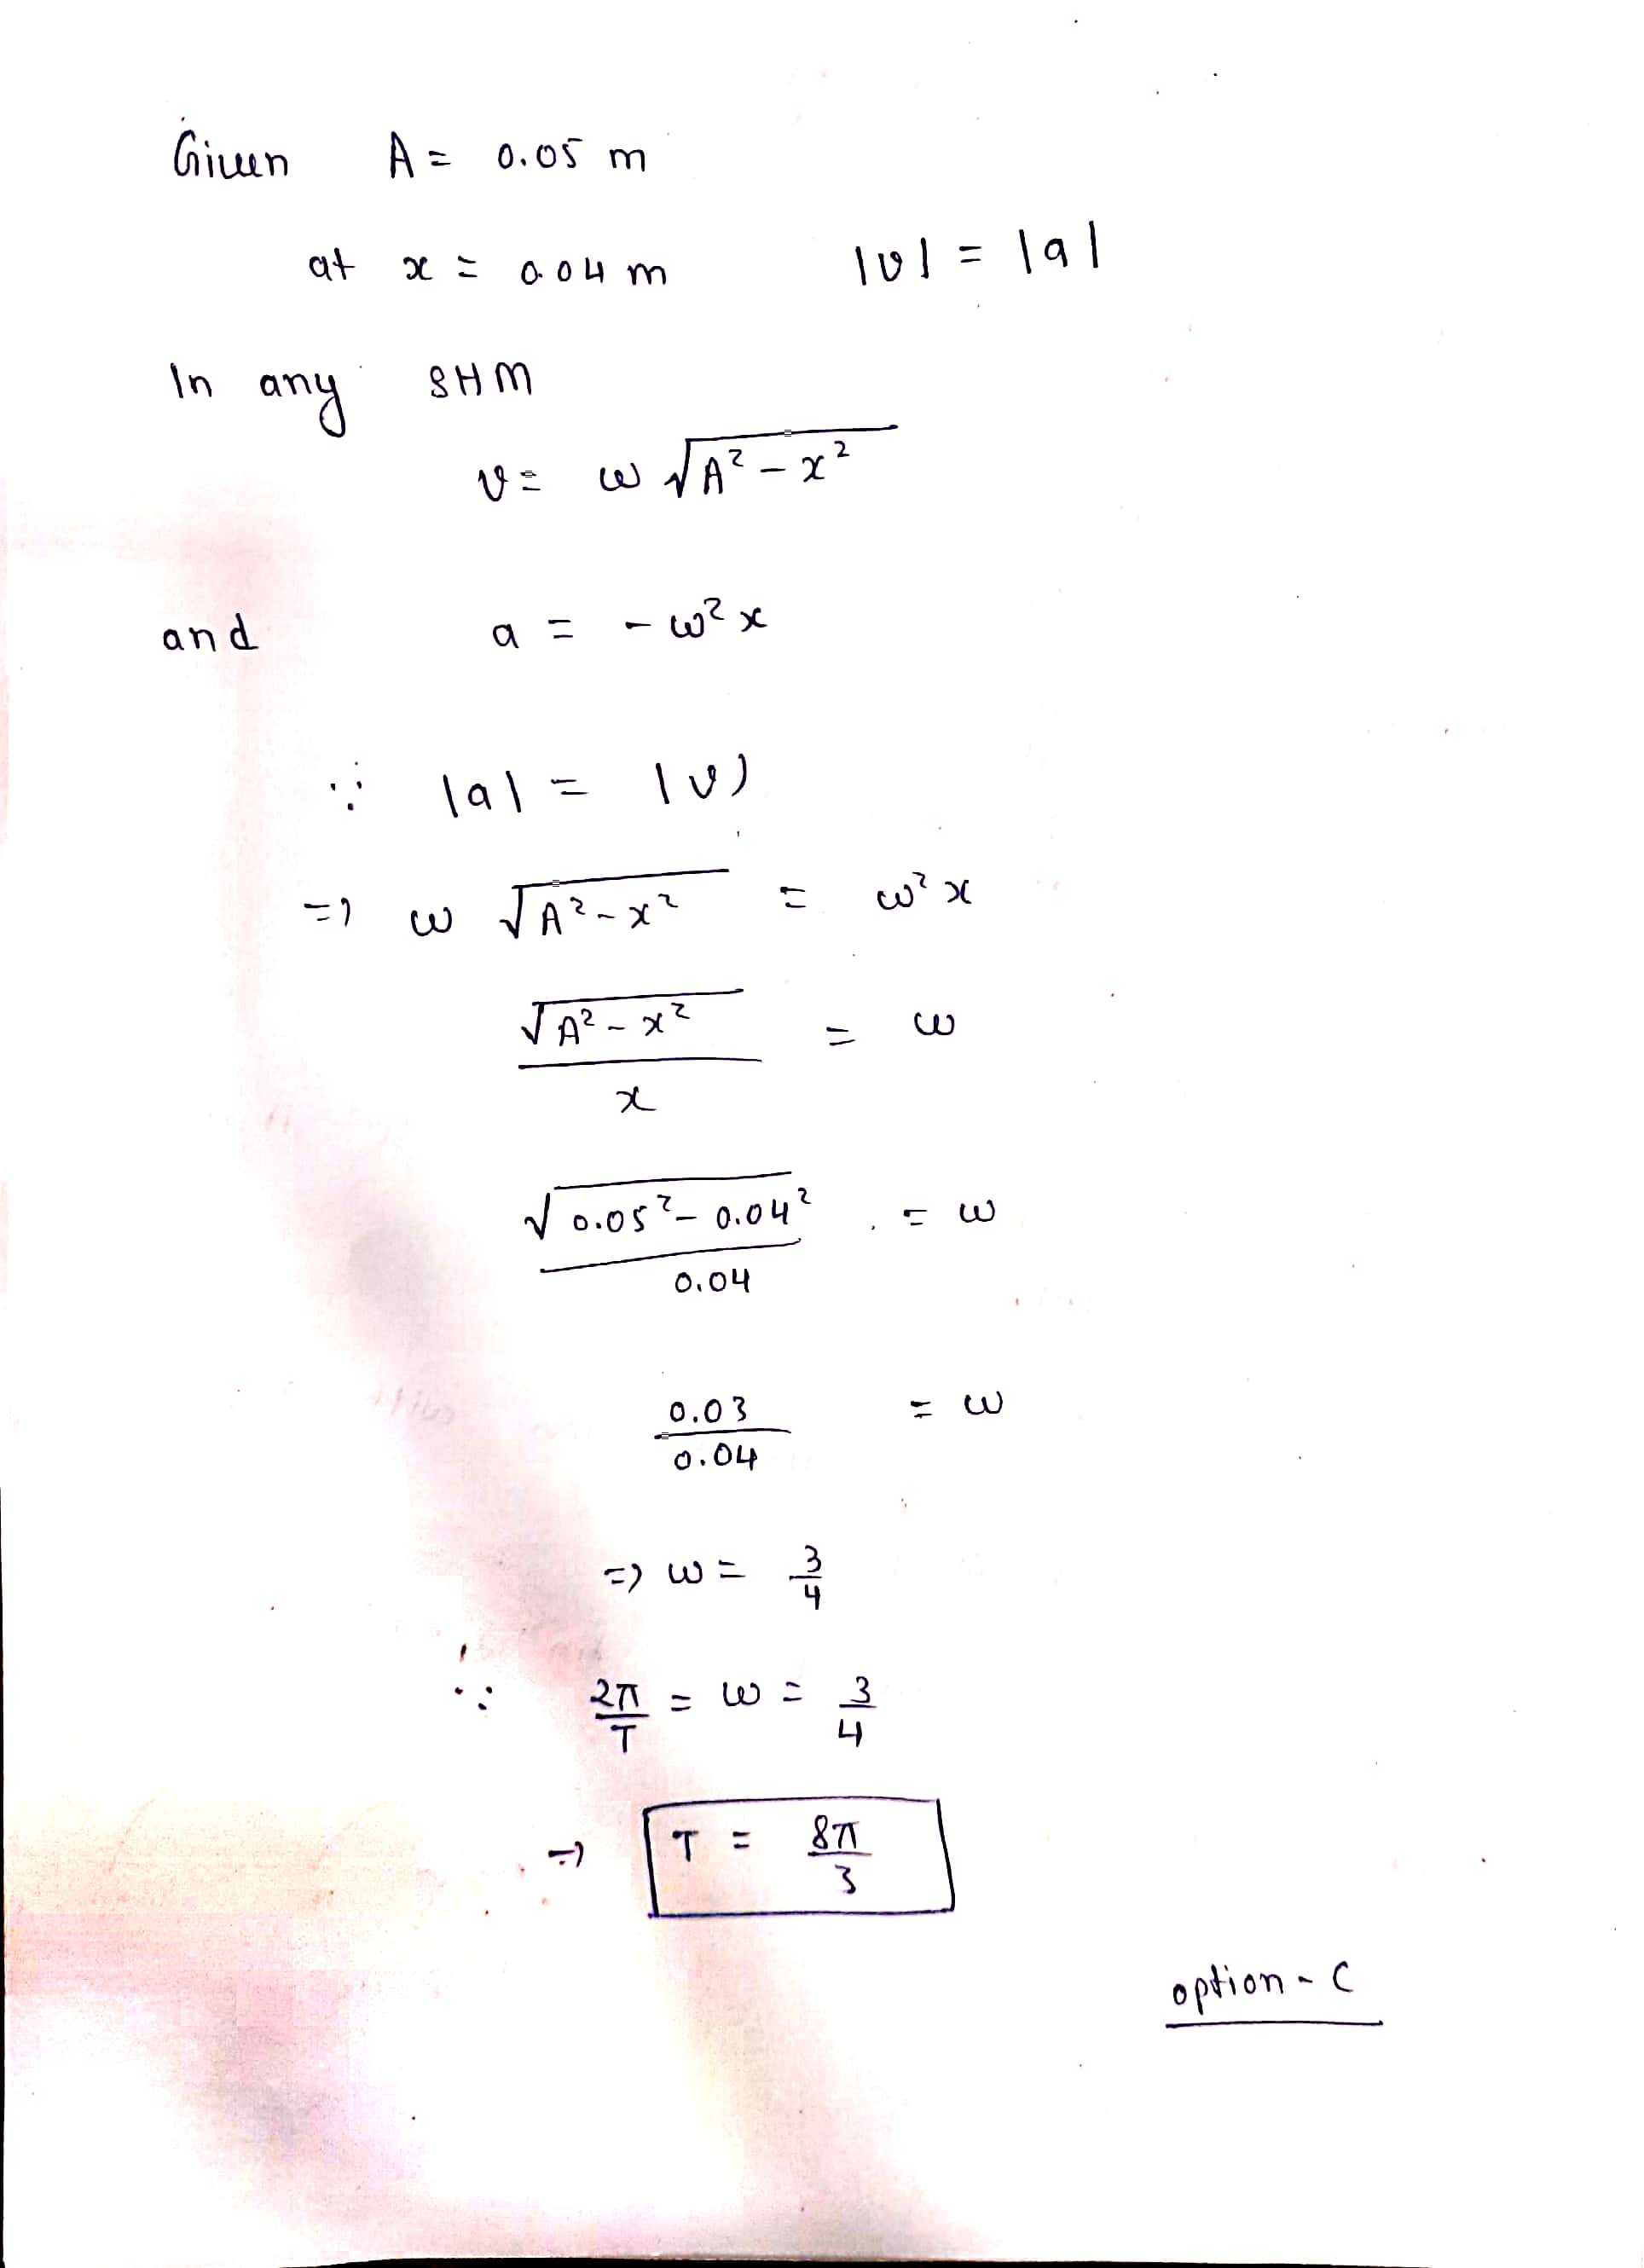 Given A = 0.05 m
at x = 0.04 m |v| = |a|
In any SHM
v = ω √A² - x²
and a = - ω² x
∵ |a| = |v)
=) ω √A² - x² = ω² x
√A² - x² = ω
x
√0.05² - 0.04² = ω
0.04
0.03 = ω
0.04
=) ω = 3/4
∵ 2π/T = ω = 3/4
=) T = 8π/3
option - C